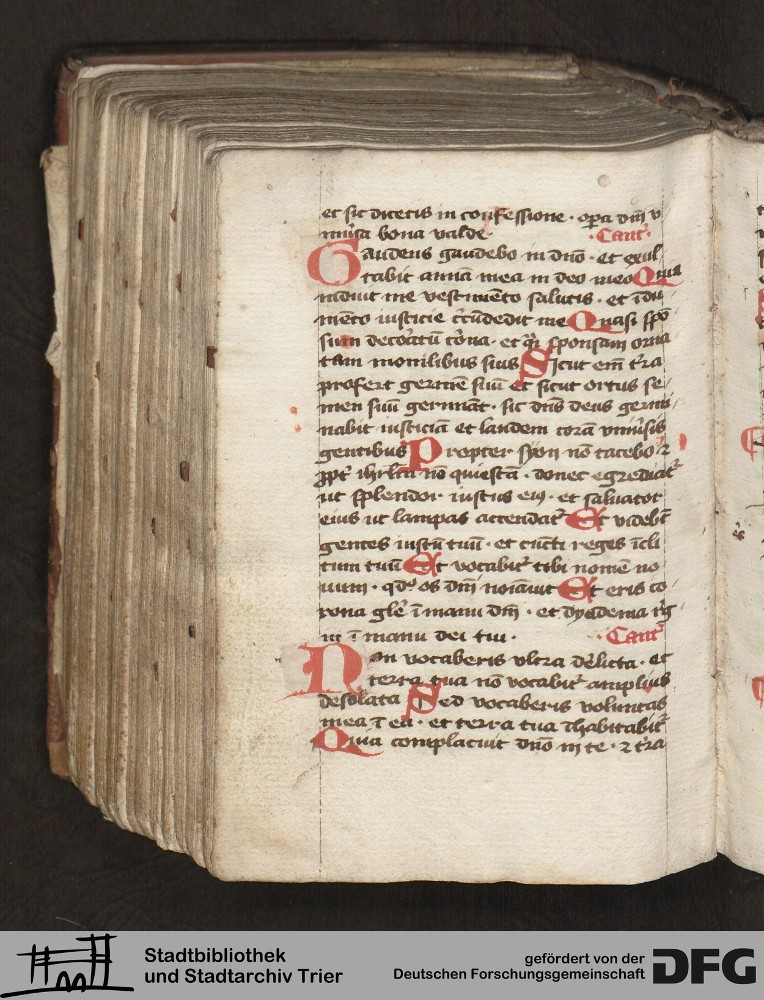 et sic dicetis in confessione · opa dm̄ v
niūsa bona valde · Cant̄ ·
Gaudens gaudebo in dn̄o · et exul
tabit anīa mea in deo meo Quia
induit me vestimēto salutis · et īdu
mēto iusticie cc̄ūdedit me Quasi spō
sum decoratū cōna · et q̄i sponsam orna
tam monilibus suis Sicut em̄ tr̄a
profert germē suū et sicut ortus se
men suū germnāt · sic dn̄s deus germi
nabit iusticiā et laudem corā vniūsis
gentibus Propter syon nō tacebo ⁊
ꝓpt̄ ihrlm̄ nō quiescā · donec egrediat᷑
ut splendor iustus eiꝰ · et saluator
eius ut lampas accendat᷑ Et videbt̄
gentes iustū tuū · et cūcti reges īcli
tum tuū Et vocabit᷑ tibi nomē no
uum · qd̄ os dm̄ noīauit Et eris co
rona glē ī manu dm̄ · et dyadema rḡ
ni ī manu dei tui · Cant̄
Non vocaberis vltra dēlicta · et
terra tua nō vocabit᷑ amplius
desolata Sed vocaberis voluntas
mea ī ea · et terra tua īhabitabit᷑
Quia complacuit dn̄o in te · ⁊ tr̄a
Stadtbibliothek
und Stadtarchiv Trier
gefördert von der
Deutschen Forschungsgemeinschaft
DFG